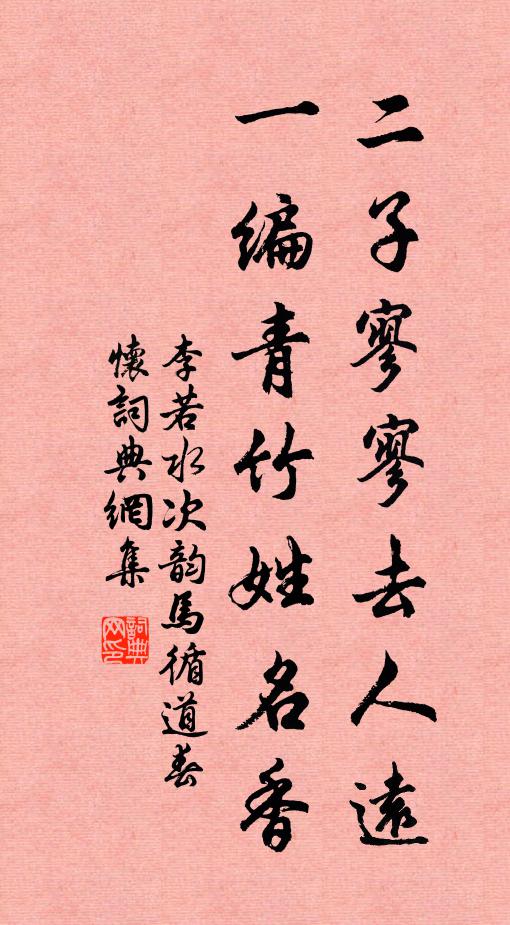 二子寥寥去人遠
一编青竹姓名香
李若水次韵馬循道春
懷詞典網集
詞典网印